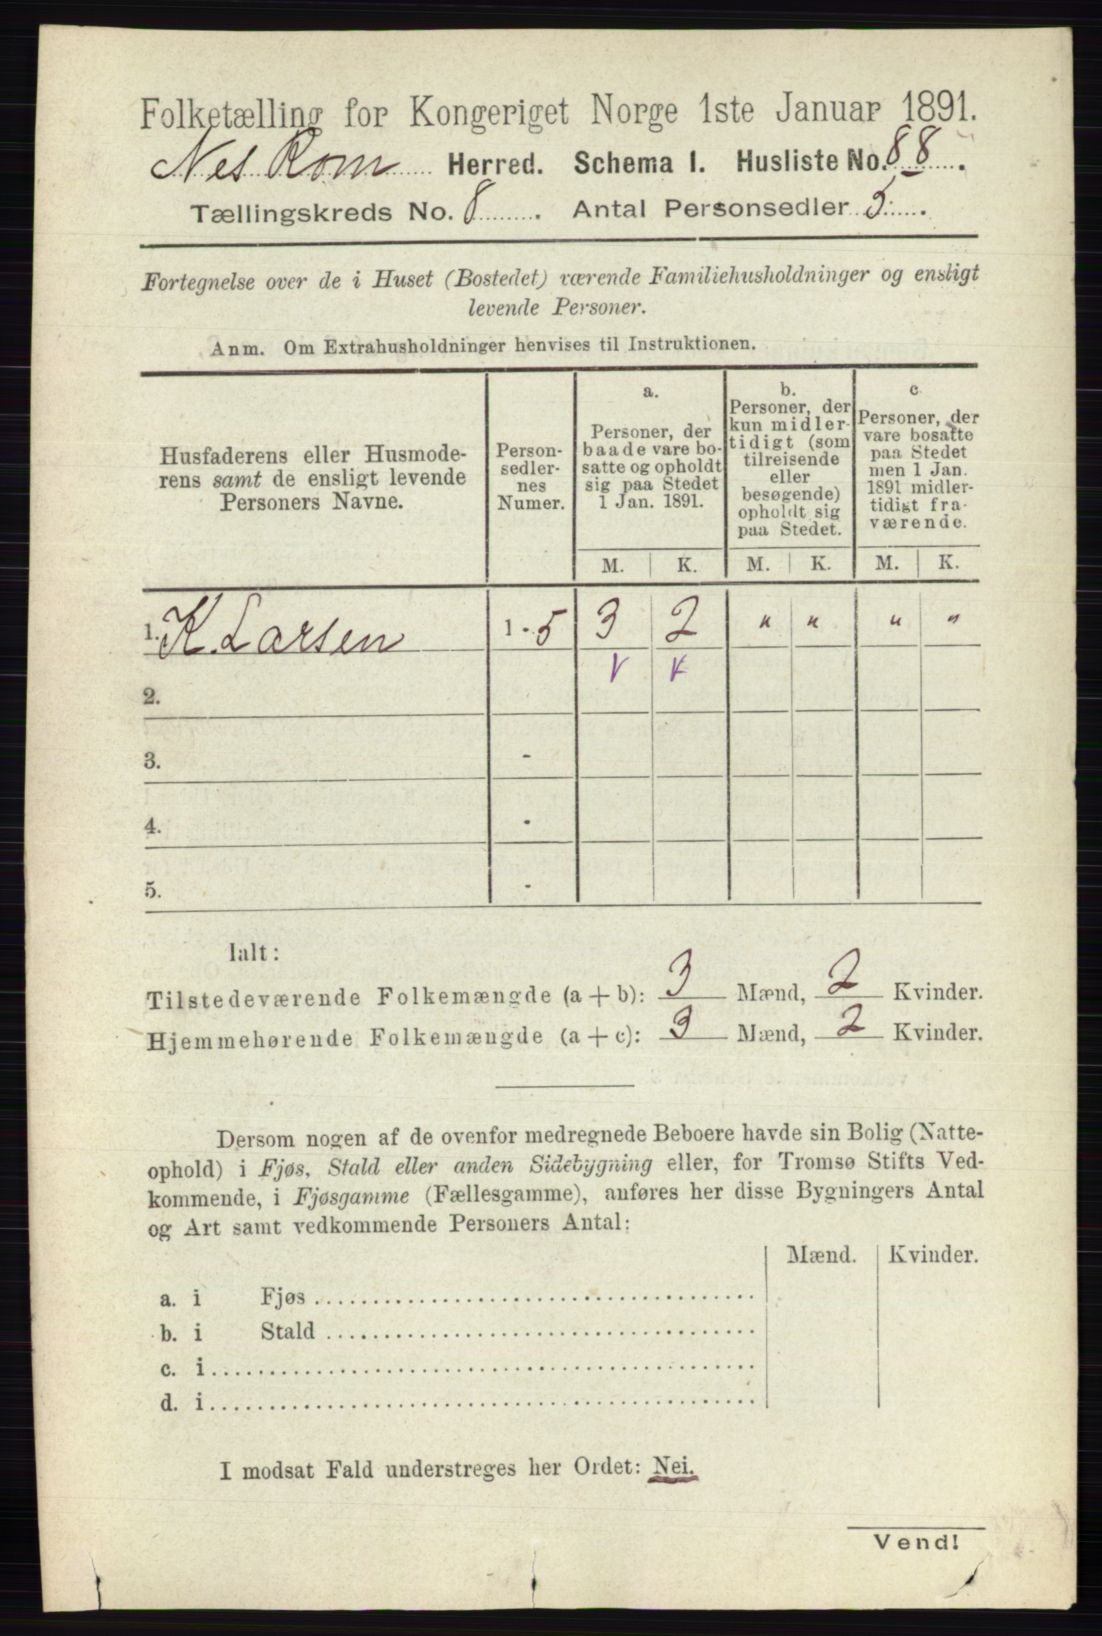 Folketælling for Kongeriget Norge 1ste Januar 1891.
Nes Rom Herred. Schema I. Husliste No. 88.
Tællingskreds No. 8. Antal Personsedler 5.
Fortegnelse over de i Huset (Bostedet) værende Familiehusholdninger og ensligt
levende Personer.
Anm. Om Extrahusholdninger henvises til Instruktionen.
Husfaderens eller Husmode-
rens samt de ensligt levende
Personers Navne.
Person-
sedler-
nes
Numer.
a.
Personer, der
baade vare bo-
satte og opholdt
sig paa Stedet
1 Jan. 1891.
b.
Personer, der
kun midler-
tidigt (som
tilreisende
eller
besøgende)
opholdt sig
paa Stedet.
c.
Personer, der
vare bosatte
paa Stedet
men 1 Jan.
1891 midler-
tidigt fra-
værende.
M. K. M. K. M. K.
1. K. Larsen 1 - 5 3 2 " " " "
2.
3. -
4. -
5. -
Ialt:
Tilstedeværende Folkemængde (a + b): 3 Mænd, 2 Kvinder.
Hjemmehørende Folkemængde (a + c): 3 Mænd, 2 Kvinder.
Dersom nogen af de ovenfor medregnede Beboere havde sin Bolig (Natte-
ophold) i Fjøs, Stald eller anden Sidebygning eller, for Tromsø Stifts Ved-
kommende, i Fjøsgamme (Fællesgamme), anføres her disse Bygningers Antal
og Art samt vedkommende Personers Antal:
Mænd. Kvinder.
a. i Fjøs
b. i Stald
c. i
d. i
I modsat Fald understreges her Ordet: Nei.
Vend!